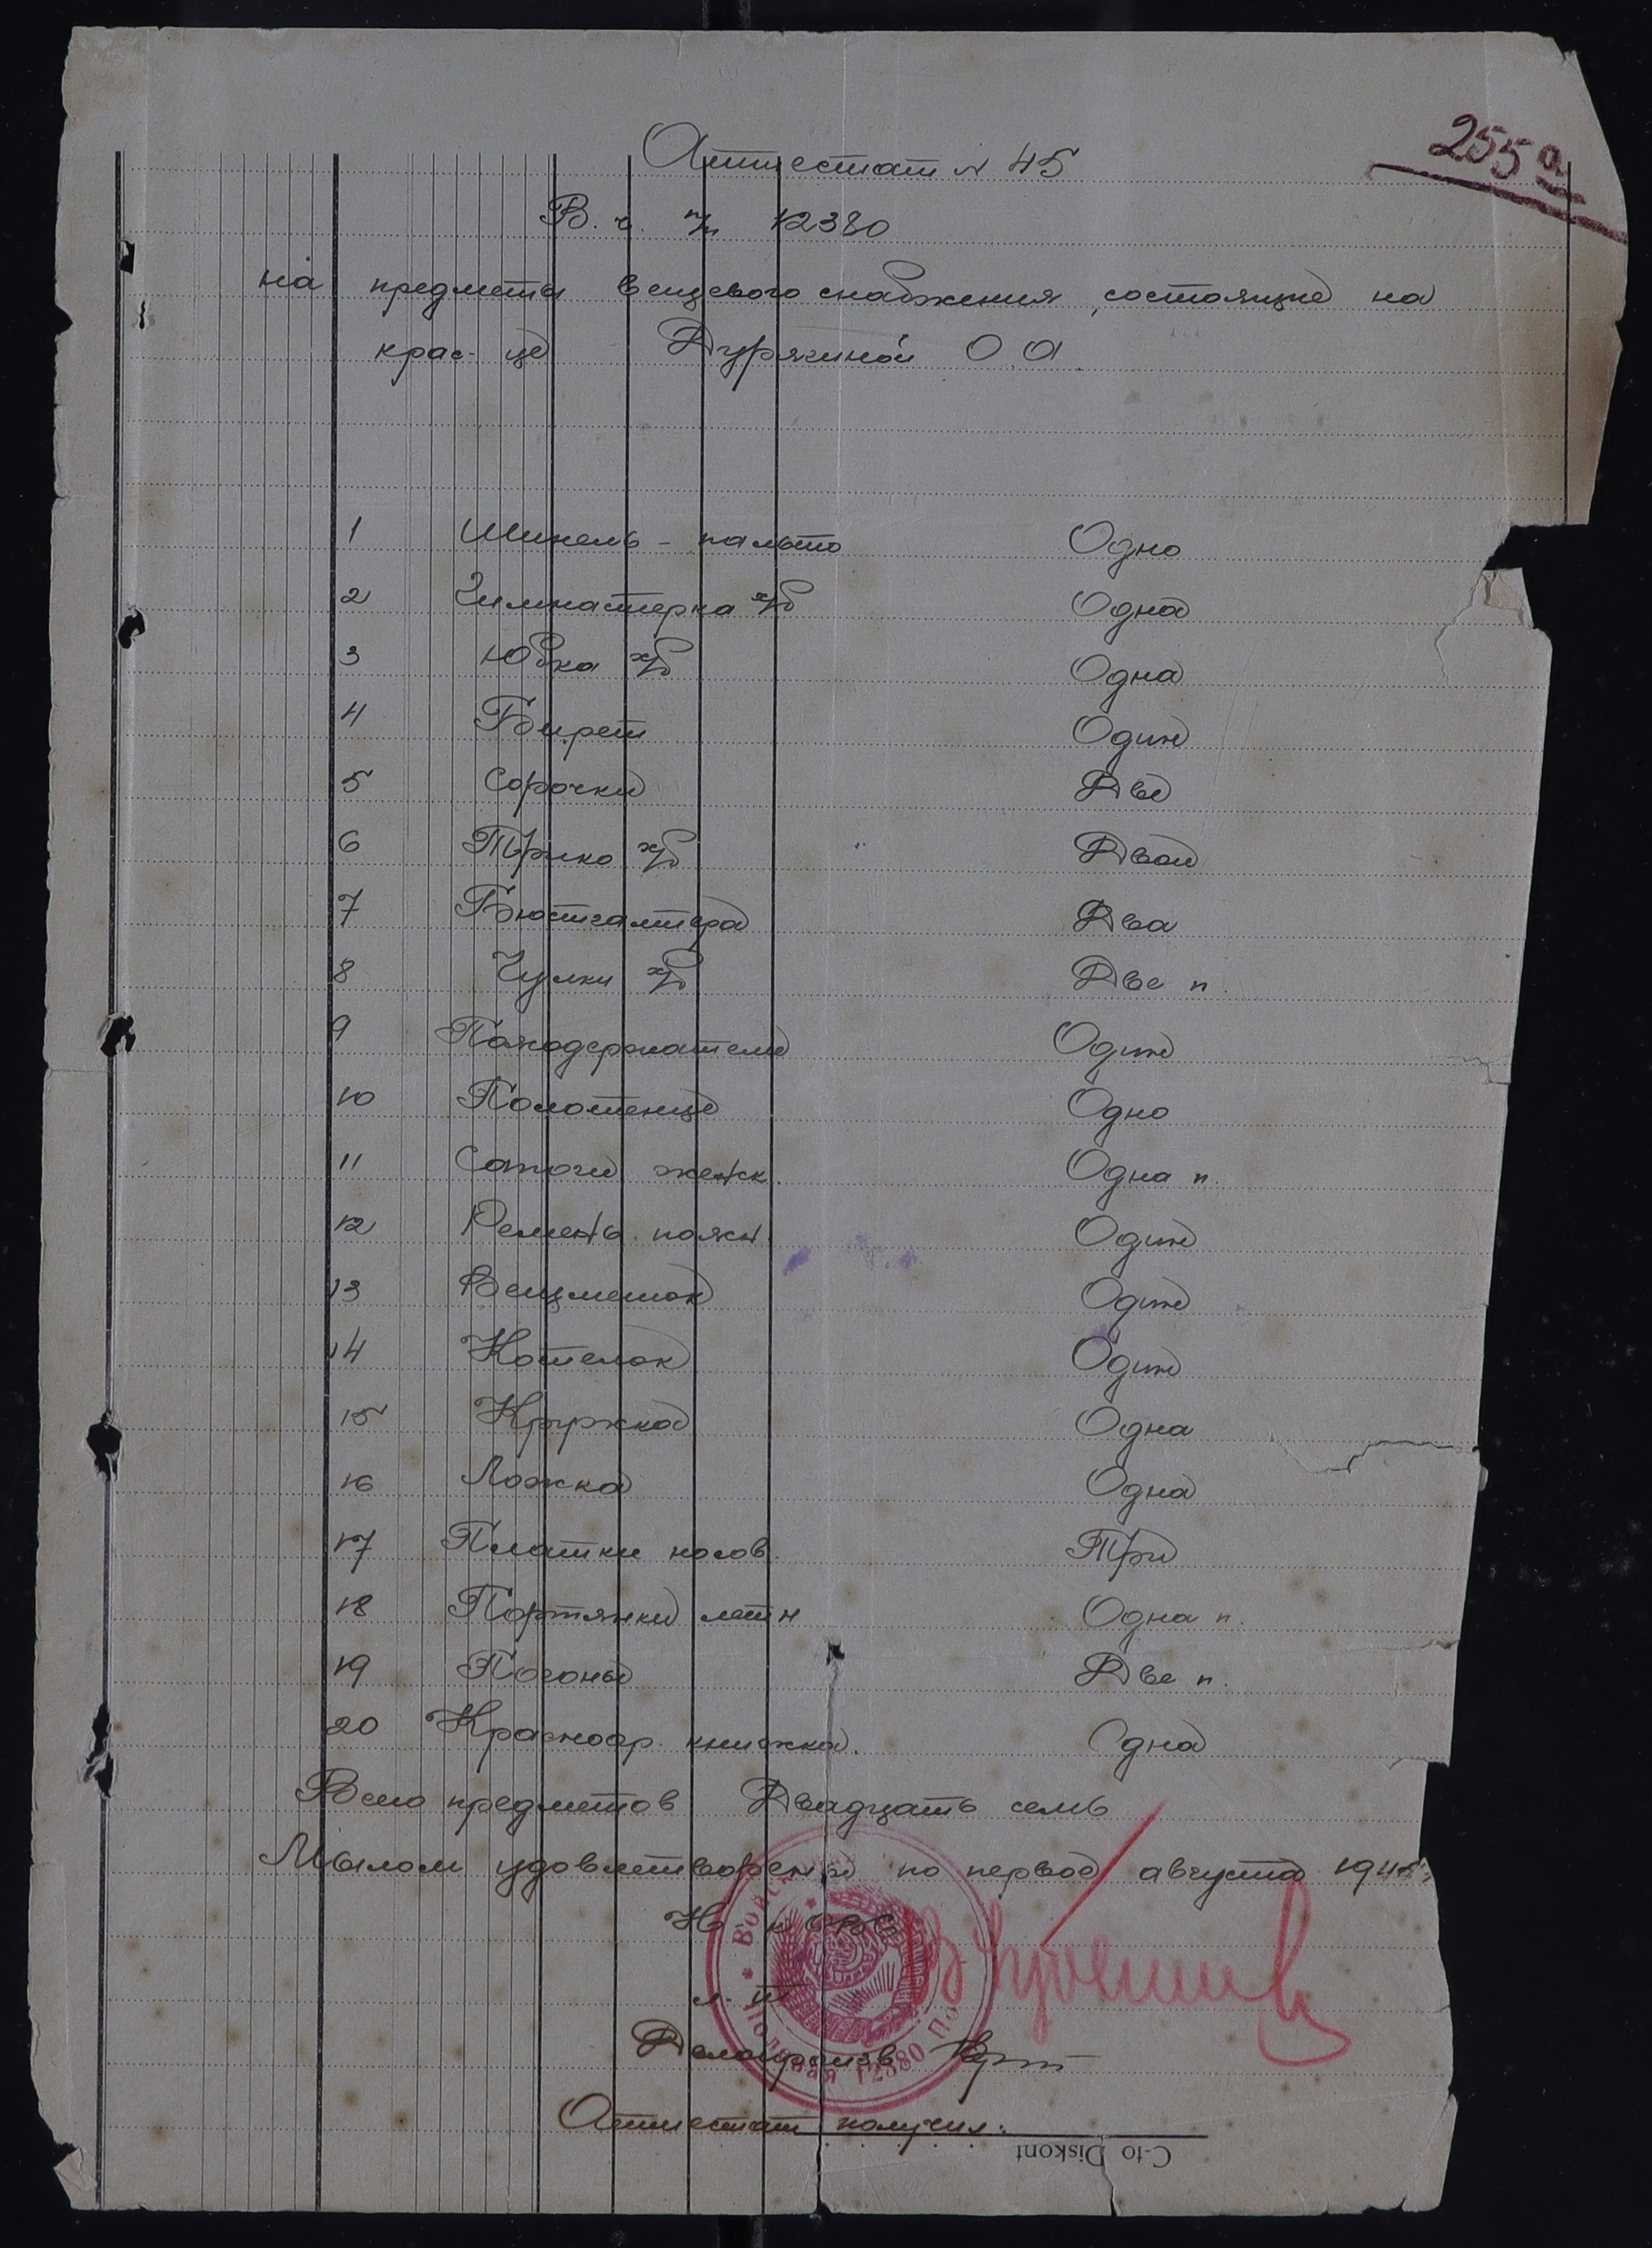 255 а
Аттестат № 45
В. ч. п/п 12380
на предметы вещевого снабжения, состоящие на
крас-це Дурякиной О. А.
1 Шинель - пальто Одно
2 Гимнастерка х/б Одна
3 Юбка х/б Одна
4 Бирет Один
5 Сорочки Две
6 Трико х/б Двои
7 Бюстгалтера Два
8 Чулки х/б Две п.
9 Пажодержатели Один
10 Полотенце Одно
11 Сапоги женск. Одна п.
12 Ремень поясн. Один
13 Вещмешок Один
14 Котелок Один
15 Кружка Одна
16 Ложка Одна
17 Платки носов. Три
18 Портянки летн Одна п.
19 Погоны Две п.
20 Красноар. книжка. Одна
Всего предметов Двадцать семь
Мылом удовлетворена по первое августа 1945
Н-к ОВС
л-т
Делопроизв
Аттестат получил:
C-to Diskont